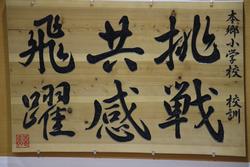 本郷小学校 校訓
挑戦
共感
飛躍